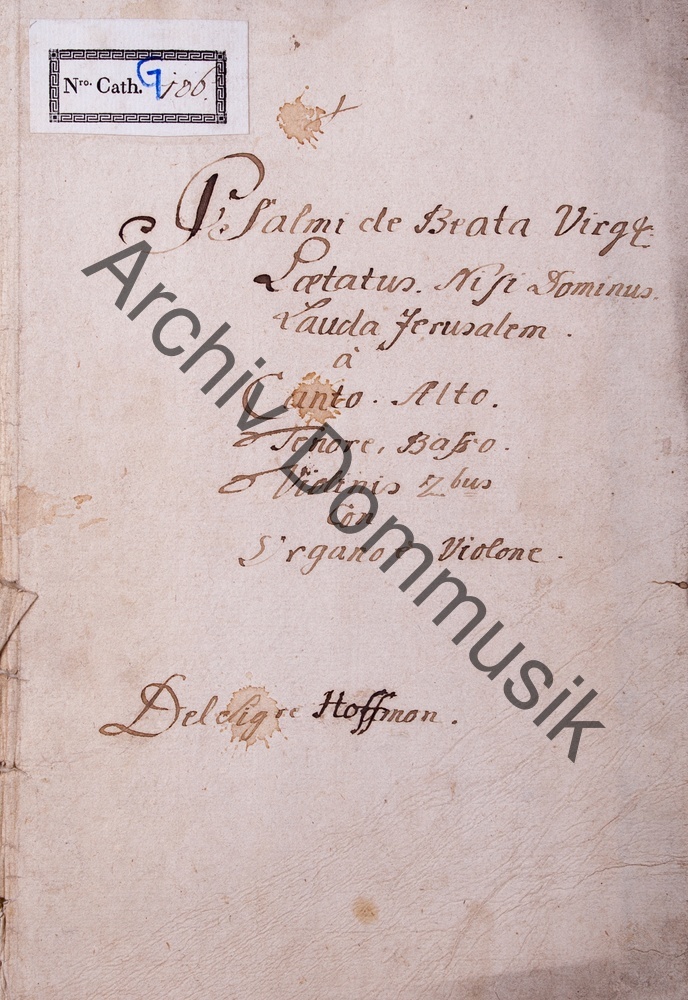 Nro. Cath. G 106.
Psalmi de Beata Virg&
Lætatus. Nisi Dominus.
Lauda Jerusalem.
à
Canto. Alto.
Tenore, Basso.
Violinis 2bus
Con
Organo è Violone.
Del Sigre Hoffmon.
Archiv Dommusik